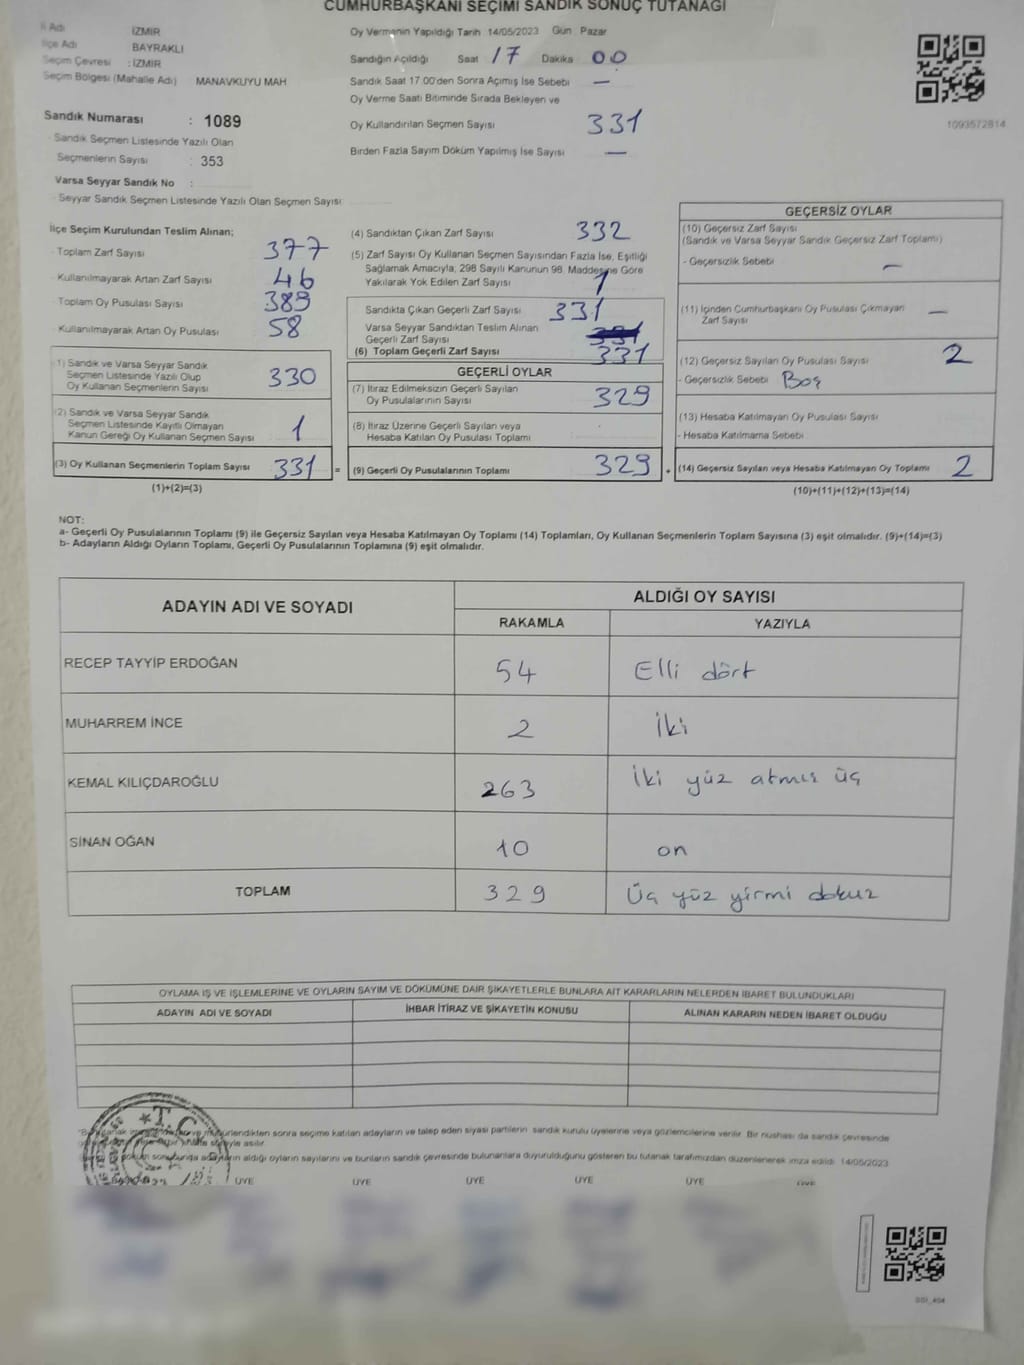 CUMHURBAŞKANI SEÇİMİ SANDIK SONUÇ TUTANAĞI
İl Adı İZMİR
İlçe Adı BAYRAKLI
Seçim Çevresi : İZMİR
Seçim Bölgesi (Mahalle Adı) MANAVKUYU MAH
Sandık Numarası : 1089
- Sandık Seçmen Listesinde Yazılı Olan
Seçmenlerin Sayısı : 353
Varsa Seyyar Sandık No :
- Seyyar Sandık Seçmen Listesinde Yazılı Olan Seçmen Sayısı
Oy Vermenin Yapıldığı Tarih 14/05/2023 Gün Pazar
Sandığın Açıldığı Saat 17 Dakika 00
Sandık Saat 17.00'den Sonra Açılmış İse Sebebi —
Oy Verme Saati Bitiminde Sırada Bekleyen ve
Oy Kullandırılan Seçmen Sayısı 331
Birden Fazla Sayım Döküm Yapılmış İse Sayısı —
1093572814
İlçe Seçim Kurulundan Teslim Alınan;
- Toplam Zarf Sayısı 377
- Kullanılmayarak Artan Zarf Sayısı 46
- Toplam Oy Pusulası Sayısı 389
- Kullanılmayarak Artan Oy Pusulası 58
(1) Sandık ve Varsa Seyyar Sandık
Seçmen Listesinde Yazılı Olup
Oy Kullanan Seçmenlerin Sayısı 330
(2) Sandık ve Varsa Seyyar Sandık
Seçmen Listesinde Kayıtlı Olmayan
Kanun Gereği Oy Kullanan Seçmen Sayısı 1
(3) Oy Kullanan Seçmenlerin Toplam Sayısı 331 =
(1)+(2)=(3)
(4) Sandıktan Çıkan Zarf Sayısı 332
(5) Zarf Sayısı Oy Kullanan Seçmen Sayısından Fazla İse, Eşitliği
Sağlamak Amacıyla, 298 Sayılı Kanunun 98. Maddesine Göre
Yakılarak Yok Edilen Zarf Sayısı 1
Sandıkta Çıkan Geçerli Zarf Sayısı 331
Varsa Seyyar Sandıktan Teslim Alınan
Geçerli Zarf Sayısı 331
(6) Toplam Geçerli Zarf Sayısı 331
GEÇERLİ OYLAR
(7) İtiraz Edilmeksizin Geçerli Sayılan
Oy Pusulalarının Sayısı 329
(8) İtiraz Üzerine Geçerli Sayılan veya
Hesaba Katılan Oy Pusulası Toplamı
(9) Geçerli Oy Pusulalarının Toplamı 329 +
GEÇERSİZ OYLAR
(10) Geçersiz Zarf Sayısı
(Sandık ve Varsa Seyyar Sandık Geçersiz Zarf Toplamı)
- Geçersizlik Sebebi —
(11) İçinden Cumhurbaşkanı Oy Pusulası Çıkmayan
Zarf Sayısı —
(12) Geçersiz Sayılan Oy Pusulası Sayısı 2
- Geçersizlik Sebebi Boş
(13) Hesaba Katılmayan Oy Pusulası Sayısı
- Hesaba Katılmama Sebebi
(14) Geçersiz Sayılan veya Hesaba Katılmayan Oy Toplamı 2
(10)+(11)+(12)+(13)=(14)
NOT:
a- Geçerli Oy Pusulalarının Toplamı (9) ile Geçersiz Sayılan veya Hesaba Katılmayan Oy Toplamı (14) Toplamları, Oy Kullanan Seçmenlerin Toplam Sayısına (3) eşit olmalıdır. (9)+(14)=(3)
b- Adayların Aldığı Oyların Toplamı, Geçerli Oy Pusulalarının Toplamına (9) eşit olmalıdır.
ADAYIN ADI VE SOYADI ALDIĞI OY SAYISI
RAKAMLA YAZIYLA
RECEP TAYYİP ERDOĞAN 54 Elli dört
MUHARREM İNCE 2 İki
KEMAL KILIÇDAROĞLU 263 İki yüz atmış üç
SİNAN OĞAN 10 on
TOPLAM 329 Üç yüz yirmi dokuz
OYLAMA İŞ VE İŞLEMLERİNE VE OYLARIN SAYIM VE DÖKÜMÜNE DAİR ŞİKAYETLERLE BUNLARA AİT KARARLARIN NELERDEN İBARET BULUNDUKLARI
ADAYIN ADI VE SOYADI İHBAR İTİRAZ VE ŞİKAYETİN KONUSU ALINAN KARARIN NEDEN İBARET OLDUĞU
sonra seçime katılan adayların ve talep eden siyasi partilerin sandık kurulu üyelerine veya gözlemcilerine verilir. Bir nüshası da sandık çevresinde
asılır.
aldığı oyların sayılarını ve bunların sandık çevresinde bulunanlara duyurulduğunu gösteren bu tutanak tarafımızdan düzenlenerek imza edildi. 14/05/2023
T.C.
ÜYE ÜYE ÜYE ÜYE ÜYE ÜYE